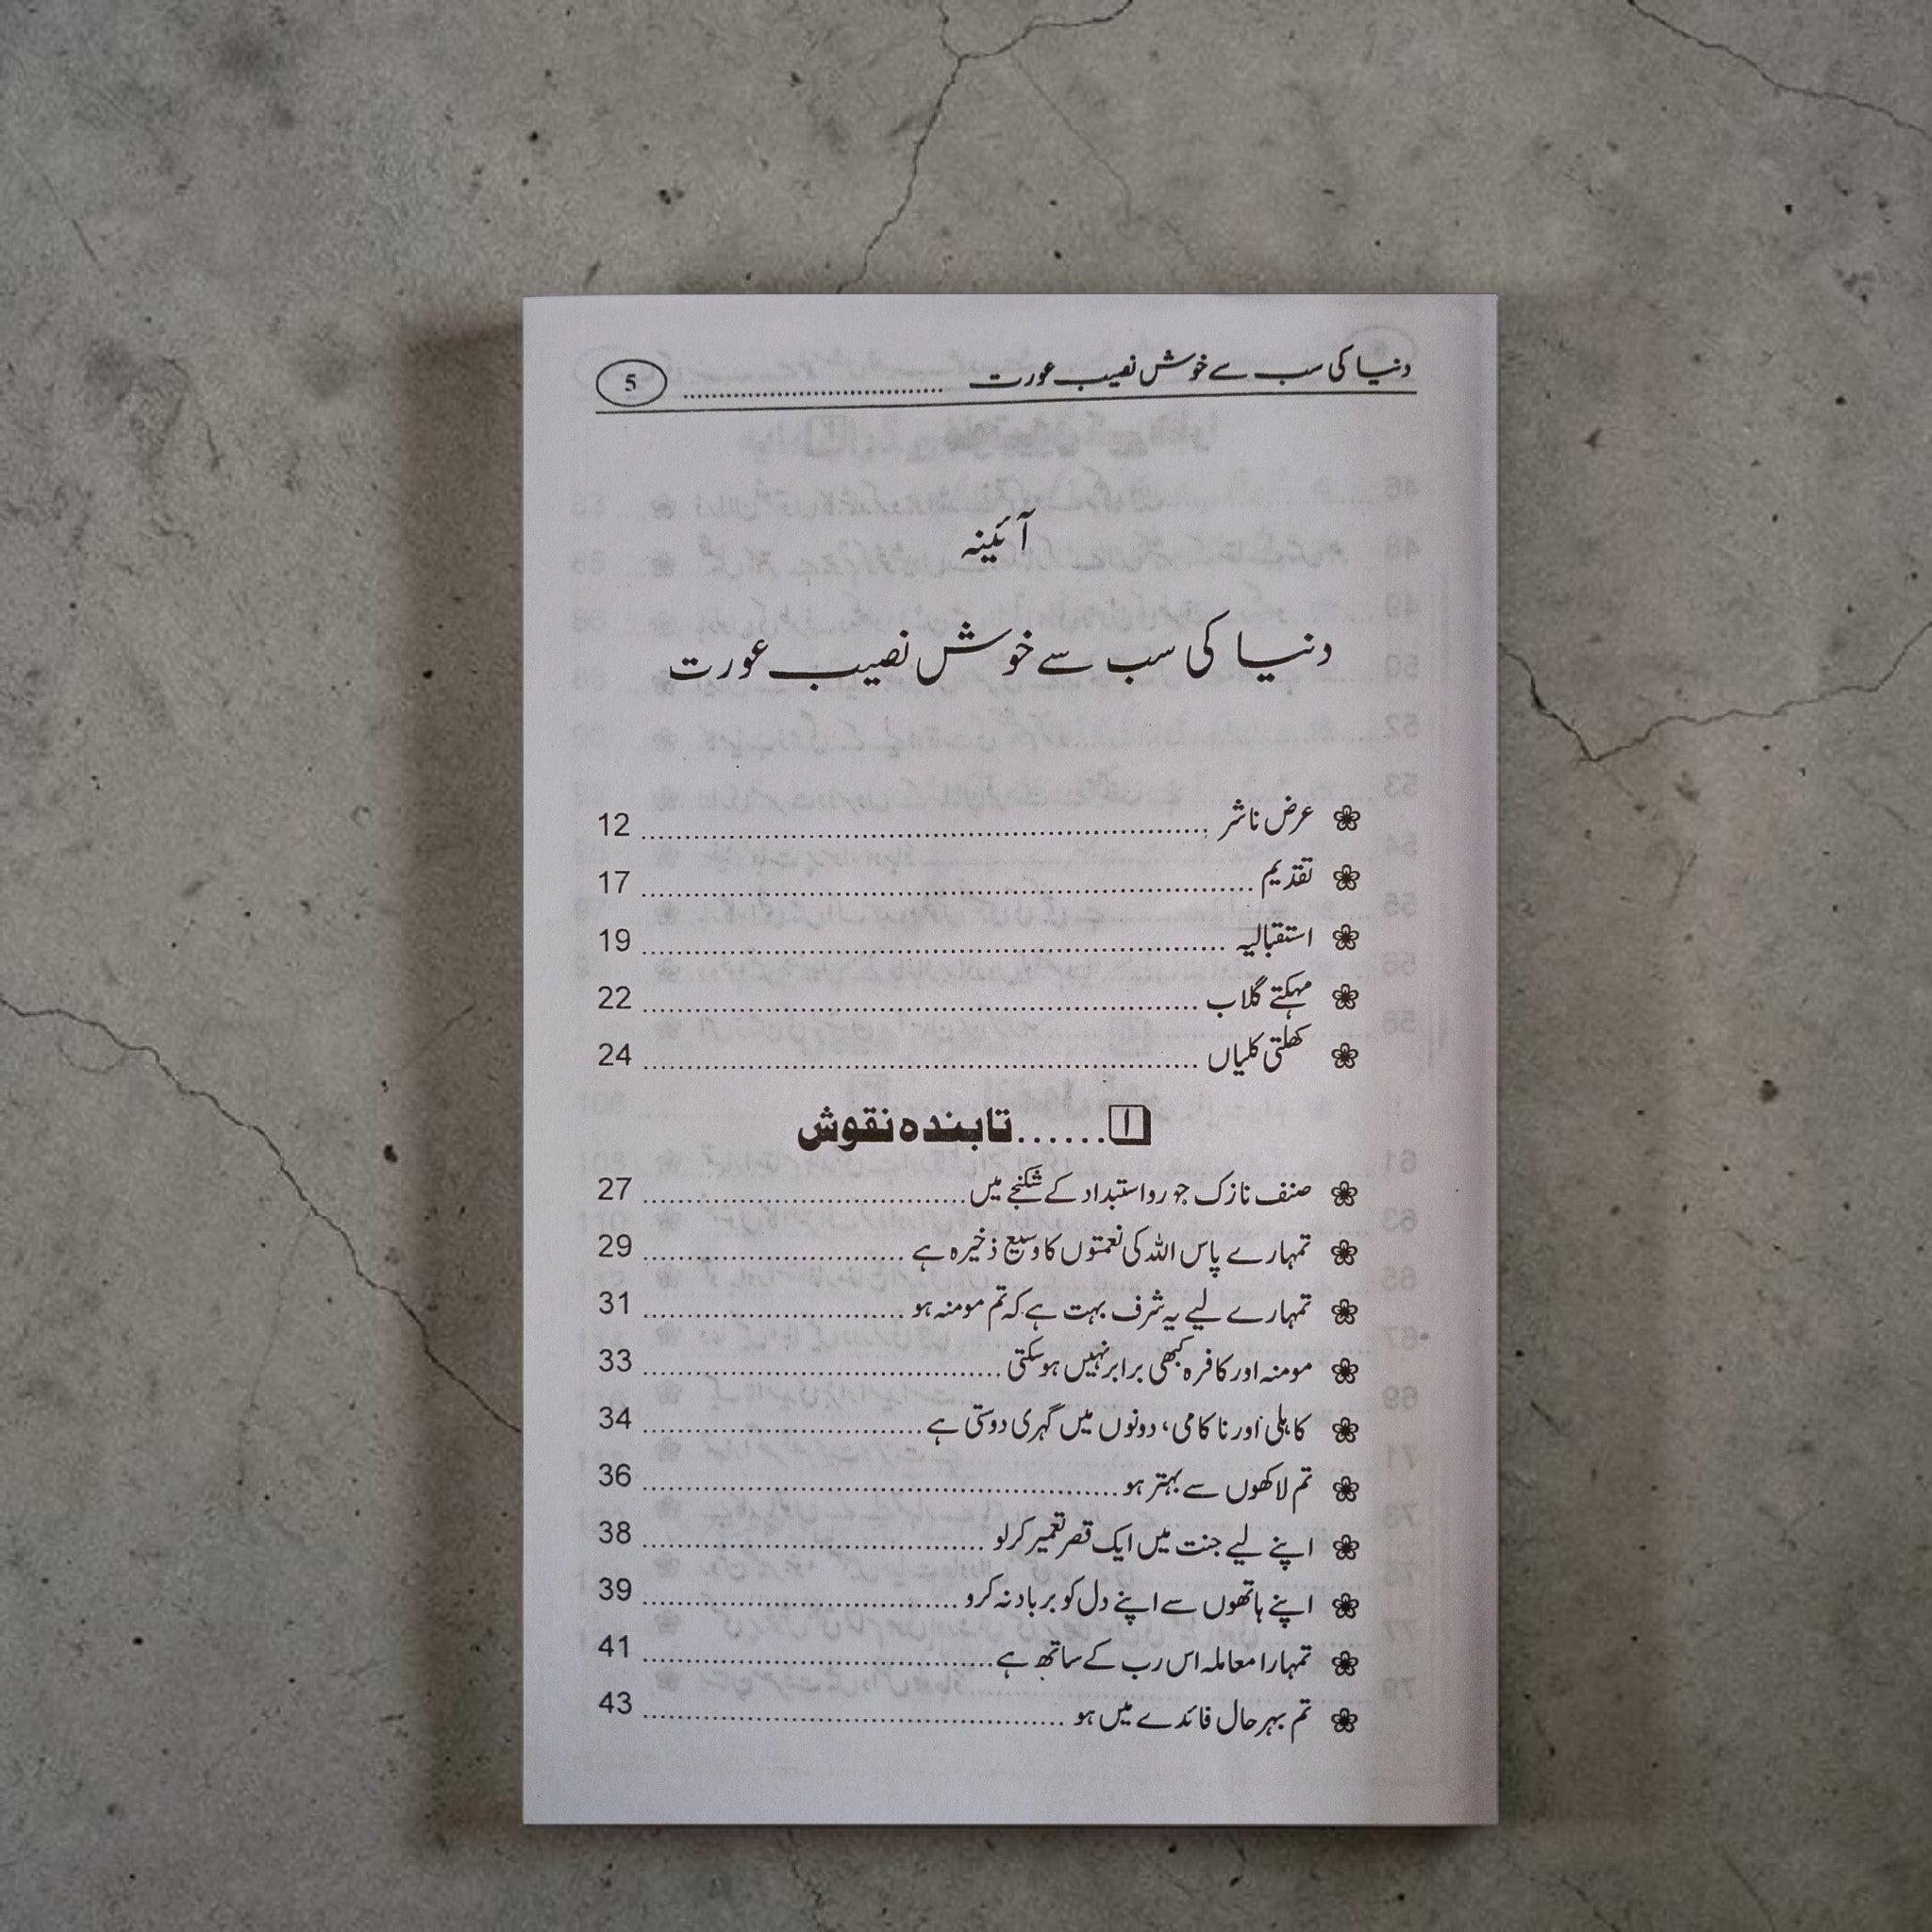 دنیا کی سب سے خوش نصیب عورت .............................. 5
آئینہ
دنیا کی سب سے خوش نصیب عورت
عرض ناشر .............................. 12
تقدیم .............................. 17
استقبالیہ .............................. 19
مہکتے گلاب .............................. 22
کھلتی کلیاں .............................. 24
۱ ...... تابندہ نقوش
صنف نازک جور و استبداد کے شکنجے میں .............................. 27
تمہارے پاس اللہ کی نعمتوں کا وسیع ذخیرہ ہے .............................. 29
تمہارے لیے یہ شرف بہت ہے کہ تم مومنہ ہو .............................. 31
مومنہ اور کافرہ کبھی برابر نہیں ہو سکتی .............................. 33
کاہلی اور ناکامی، دونوں میں گہری دوستی ہے .............................. 34
تم لاکھوں سے بہتر ہو .............................. 36
اپنے لیے جنت میں ایک قصر تعمیر کر لو .............................. 38
اپنے ہاتھوں سے اپنے دل کو برباد نہ کرو .............................. 39
تمہارا معاملہ اس رب کے ساتھ ہے .............................. 41
تم بہر حال فائدے میں ہو .............................. 43